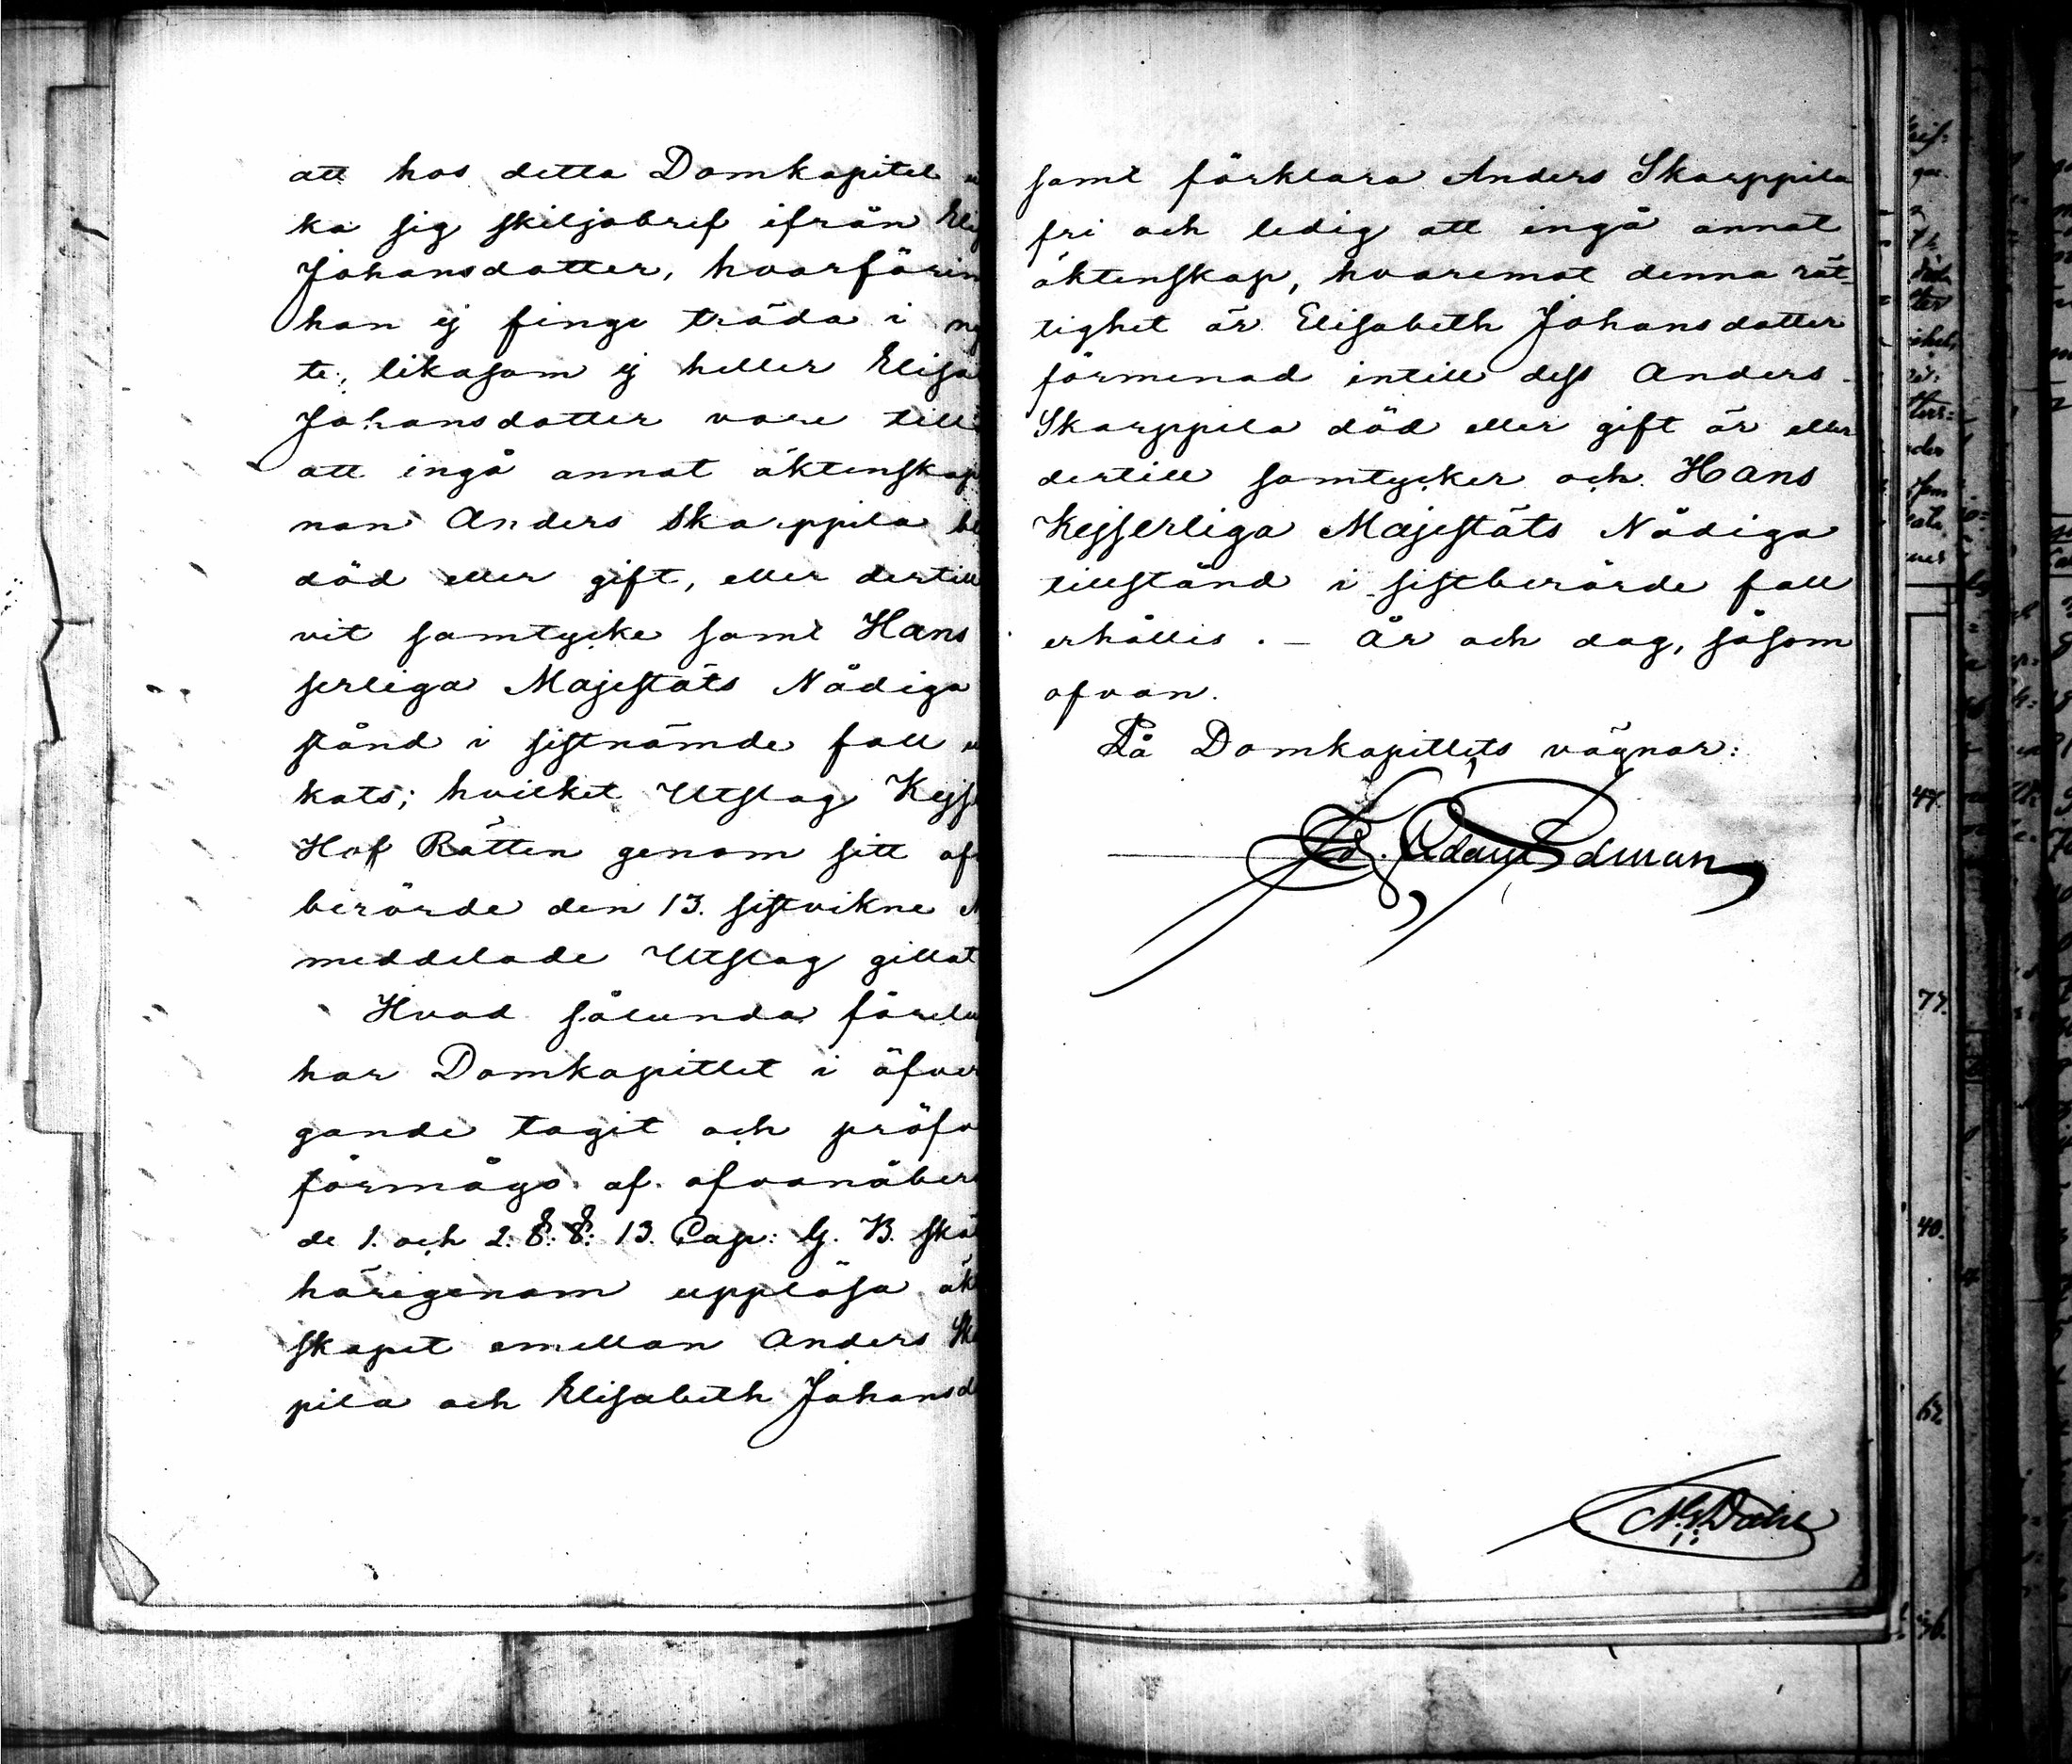 att hos detta Domkapitel
ka sig skiljobref ifrån Elis
Johansdotter, hvarförin
han ej finge träda i ny
te, likasom ej heller Elisa
Johansdotter vore till
att ingå annat äktenskap
nan Anders Skarppila bl
död eller gift, eller dertill
vit samtycke samt Hans
serliga Majestäts Nådiga
stånd i sistnämde fall
kats; hvilket Utslag Kejs
Hof Rätten genom sitt of
berörde den 13. sistvikne
meddelade Utslag gillat
Hvad sålunda förelu
har Domkapitlet i öfver
gande tagit och pröfv
förmågo af ofvanåber
de 1. och 2. §. §: 13. Cap: G. B. skä
härigenom upplösa äk
skapet emellan Anders Sk
pila och Elisabeth Johansd
samt förklara Anders Skarppila
fri och ledig att ingå annat
äktenskap, hvaremot denna rät-
tighet är Elisabeth Johansdotter
förmenad intill dess Anders
Skarppila död eller gift är eller
dertill samtycker och Hans
Kejserliga Majestäts Nådiga
tillstånd i sistberörde fall
erhållis. – År och dag, såsom
ofvan.
På Domkapitlets vägnar:
Edman
77.
40.